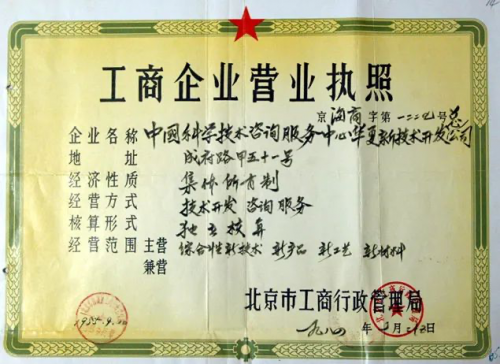 工商企业营业执照
京海商字第一二二七号
企业名称 中國科学技术咨询服务中心华夏新技术开发总公司
地址 成府路甲五十一号
经济性质 集体所有制
经营方式 技术开发 咨询服务
核算形式 独立核算
经营范围 主营 综合性新技术 新产品 新工艺 新材料
兼营
北京市工商行政管理局
一九八四年 月 日